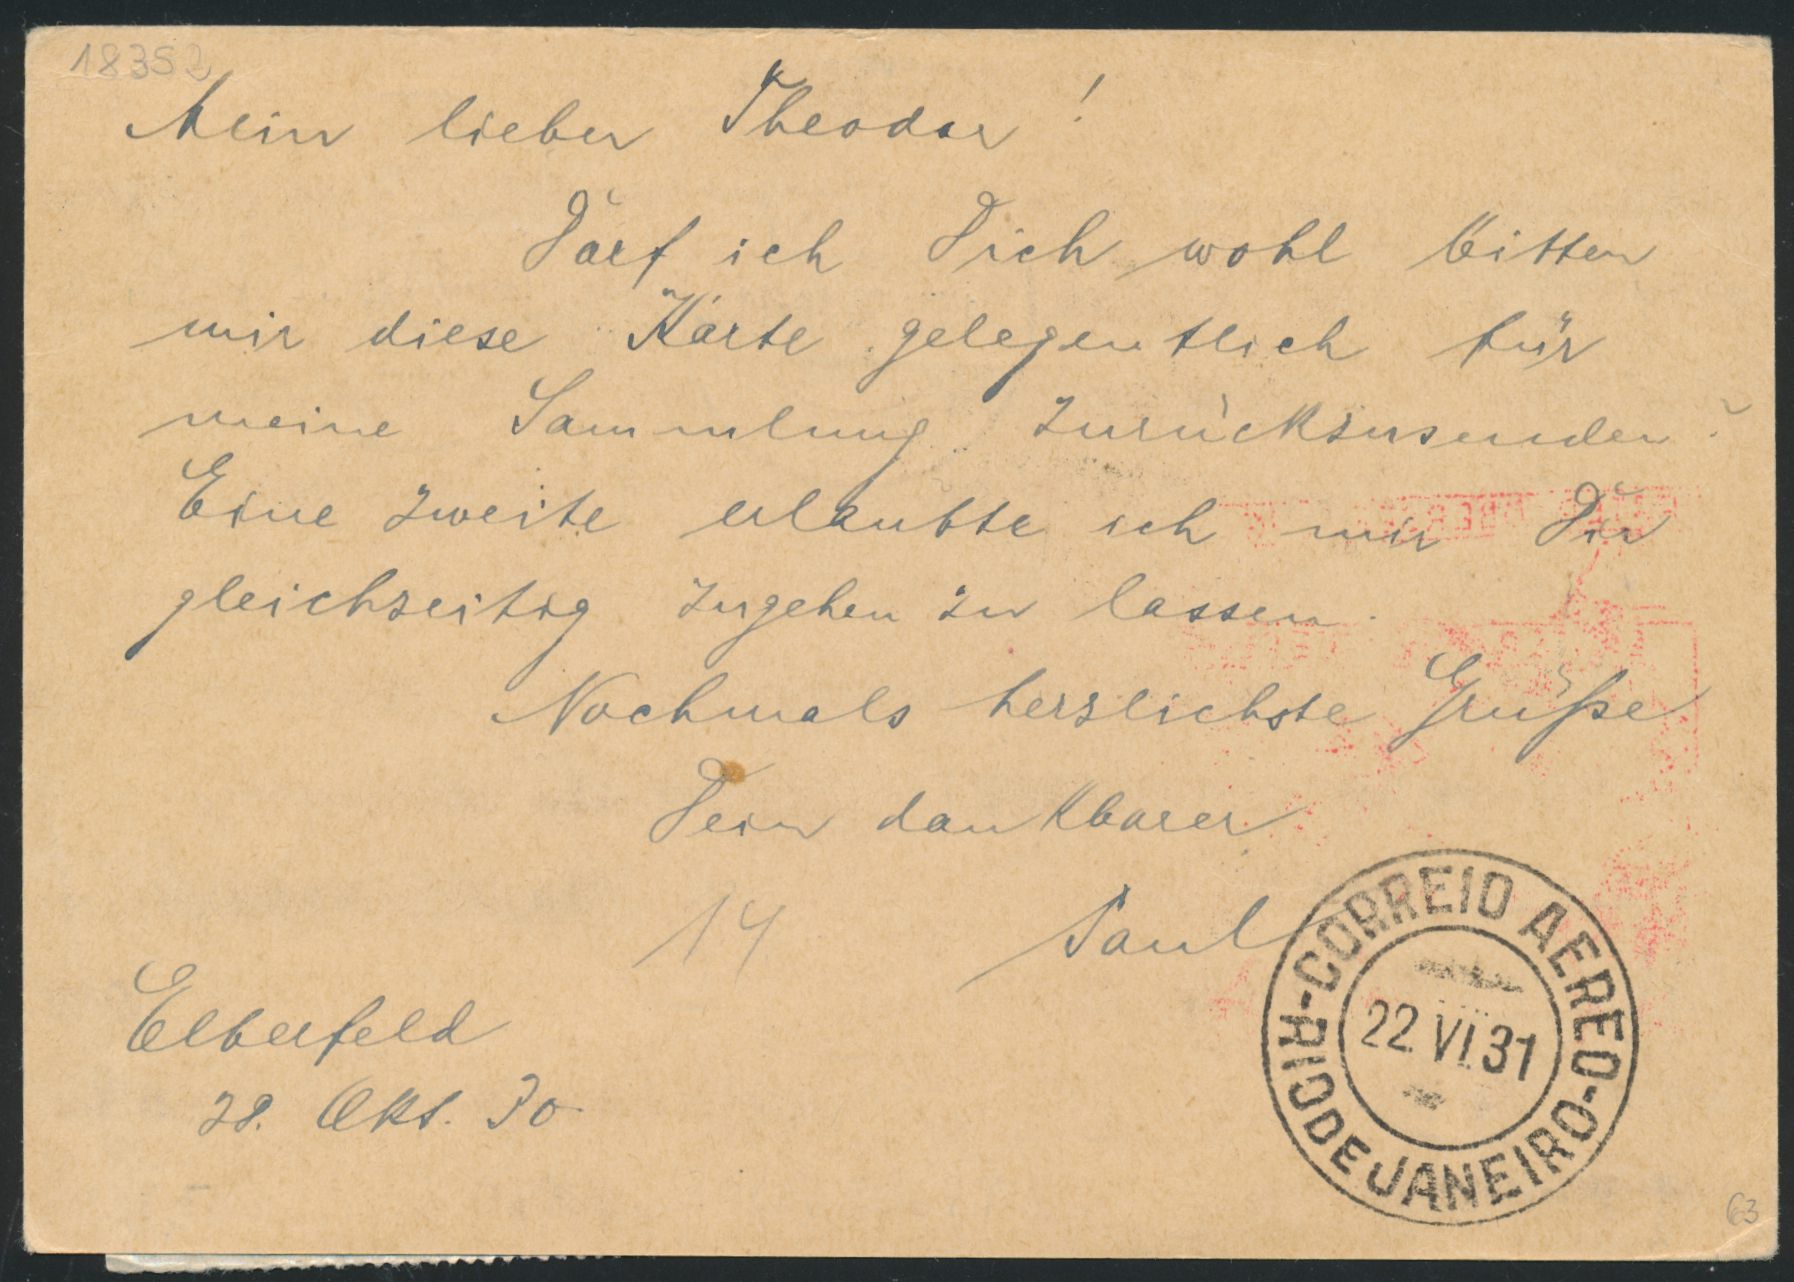 18352
Mein lieber Theodor!
Darf ich Dich wohl bitten
mir diese Karte gelegentlich für
meine Sammlung zurückzusenden?
Eine zweite erlaubte ich mir Dir
gleichzeitig zugehen zu lassen.
Nochmals herzlichste Grüße
Dein dankbarer
14 Paul
Elberfeld
28. Okt. 30
CORREIO AEREO
22 VI 31
RIO DE JANEIRO
63